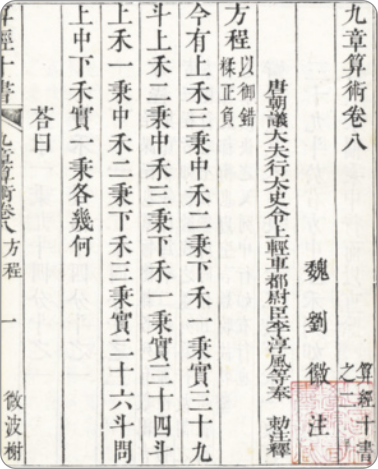 九章算術卷八
算經十書
之二
魏劉徽注
唐朝議大夫行太史令上輕車都尉臣李淳風等奉 敕注釋
方程以御錯
糅正負
今有上禾三秉中禾二秉下禾一秉實三十九
斗上禾二秉中禾三秉下禾一秉實三十四斗
上禾一秉中禾二秉下禾三秉實二十六斗問
上中下禾實一秉各幾何
荅曰
算經十書 九章算術卷八 方程 一 微波榭